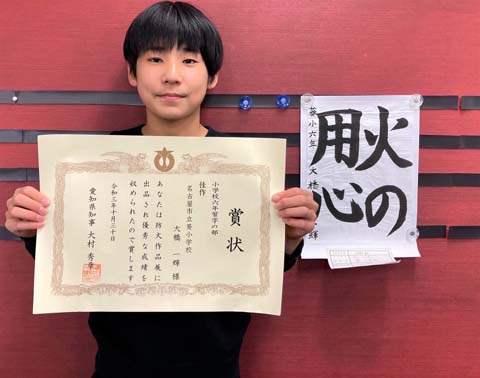 賞状
小学校六年習字の部
佳作
名古屋市立葵小学校
大橋 一輝 様
あなたは防火作品展に
出品され優秀な成績を
収められたので賞します
令和三年十月三十日
愛知県知事 大村 秀章
火の
用心
葵小六年 大橋
輝